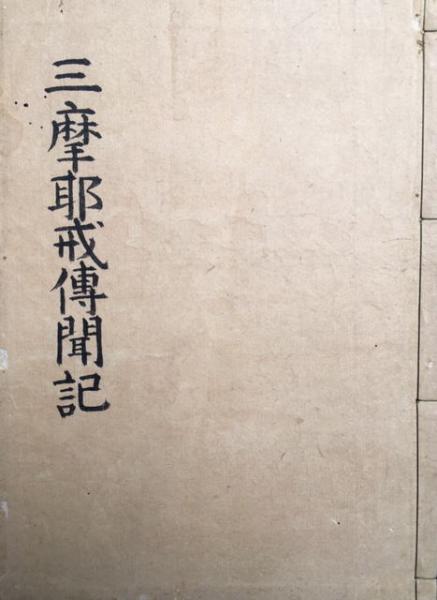 三摩耶戒傳聞記